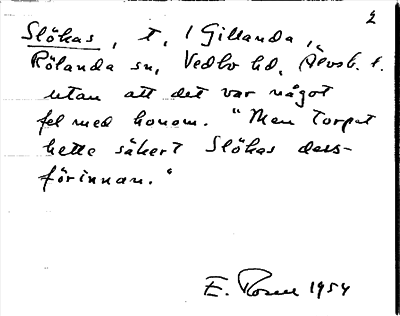 2
Slökas, t, / Gillanda,
Rölanda sn, Vedbo hd, Älvsb. l.
utan att det var något
fel med honom. "Men Torpet
hette säkert Slökas dess-
förinnan."
E. Rosen 1954